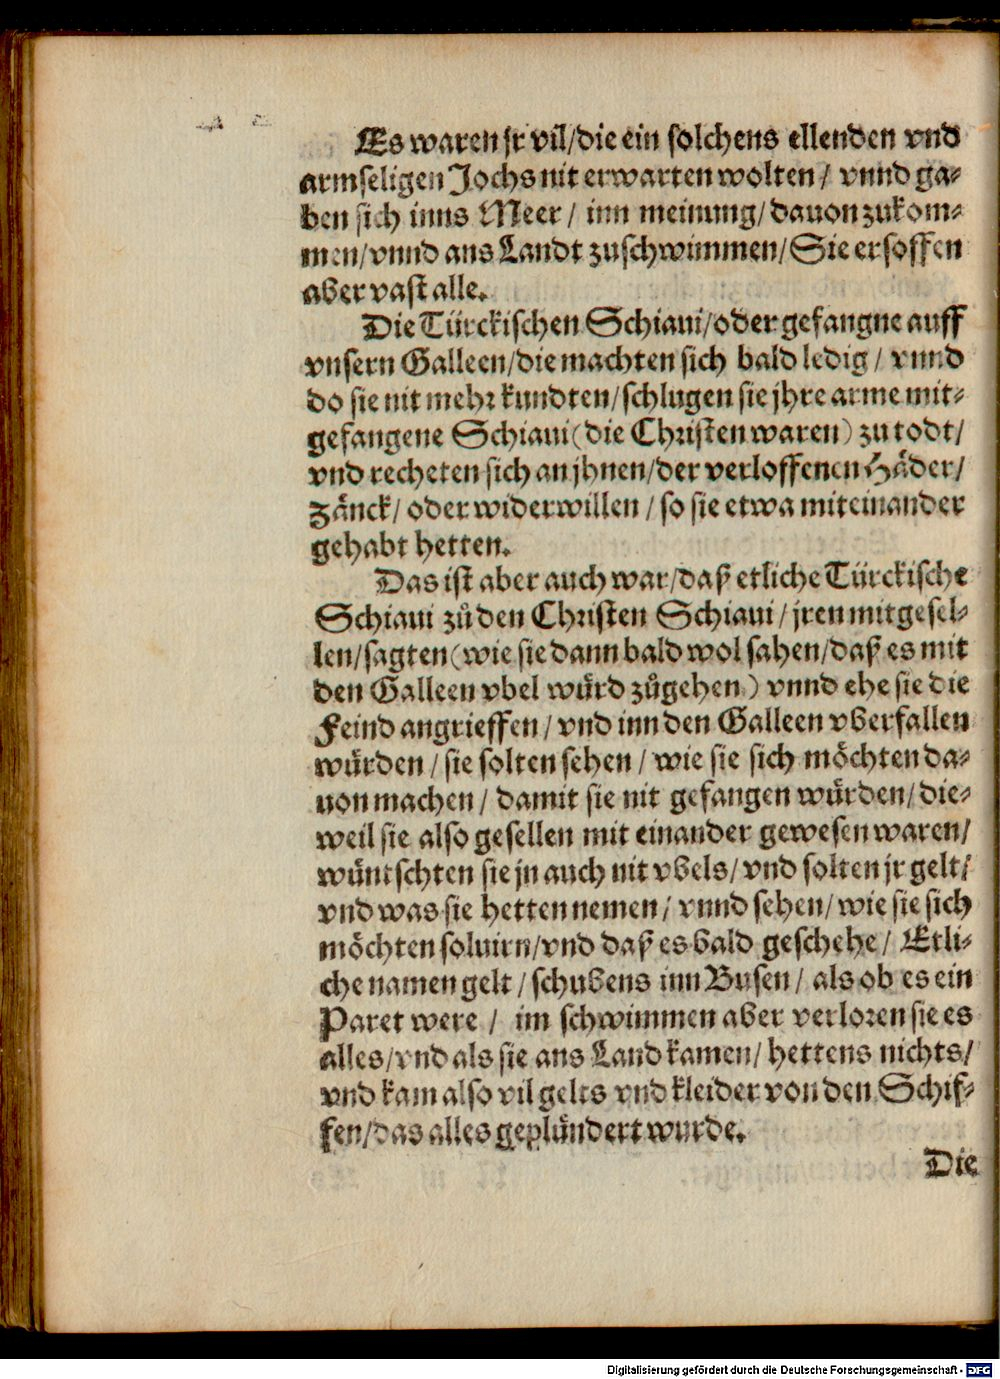 Es waren jr vil/die ein solchens ellenden vnd
armseligen Jochs nit erwarten wolten/ vnnd ga⸗
ben sich inns Meer/ inn meinung/dauon zukom⸗
men/vnnd ans Landt zuschwimmen/Sie ersoffen
aber vast alle.
Die Türckischen Schiaui/oder gefangne auff
vnsern Galleen/die machten sich bald ledig/ vnnd
do sie nit mehr kundten/schlugen sie jhre arme mit⸗
gefangene Schiaui(die Christen waren) zu todt/
vnd recheten sich an jhnen/der verloffenen Häder/
Zänck/ oder widerwillen/so sie etwa miteinander
gehabt hetten.
Das ist aber auch war/daß etliche Türckische
Schiaui zů den Christen Schiaui/ jren mitgesel⸗
len/sagten(wie sie dann bald wol sahen/daß es mit
den Galleen vbel würd zůgehen) vnnd ehe sie die
Feind angrieffen/ vnd inn den Galleen vberfallen
würden/ sie solten sehen/ wie sie sich möchten da⸗
uon machen/ damit sie nit gefangen würden/ die⸗
weil sie also gesellen mit einander gewesen waren/
wüntschten sie jn auch nit vbels/ vnd solten jr gelt/
vnd was sie hetten nemen/ vnnd sehen/ wie sie sich
möchten soluirn/vnd daß es bald geschehe/ Etli⸗
che namen gelt/ schubens inn Busen/ als ob es ein
Paret were/ im schwimmen aber verloren sie es
alles/vnd als sie ans Land kamen/ hettens nichts/
vnd kam also vil gelts vnd kleider von den Schif⸗
fen/das alles geplündert wurde.
Die
Digitalisierung gefördert durch die Deutsche Forschungsgemeinschaft - DFG